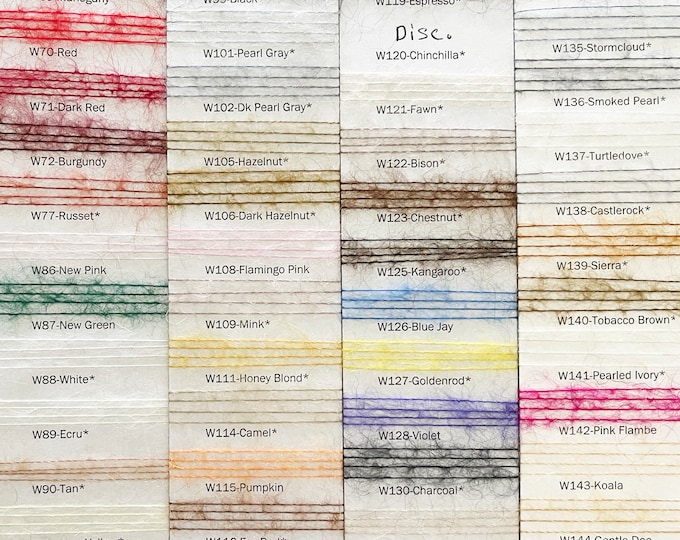 W70-Red
W71-Dark Red
W72-Burgundy
W77-Russet*
W86-New Pink
W87-New Green
W88-White*
W89-Ecru*
W90-Tan*
W101-Pearl Gray*
W102-Dk Pearl Gray*
W105-Hazelnut*
W106-Dark Hazelnut*
W108-Flamingo Pink
W109-Mink*
W111-Honey Blond*
W114-Camel*
W115-Pumpkin
W119-Espresso*
Disc.
W120-Chinchilla*
W121-Fawn*
W122-Bison*
W123-Chestnut*
W125-Kangaroo*
W126-Blue Jay
W127-Goldenrod*
W128-Violet
W130-Charcoal*
W135-Stormcloud*
W136-Smoked Pearl*
W137-Turtledove*
W138-Castlerock*
W139-Sierra*
W140-Tobacco Brown*
W141-Pearled Ivory*
W142-Pink Flambe
W143-Koala